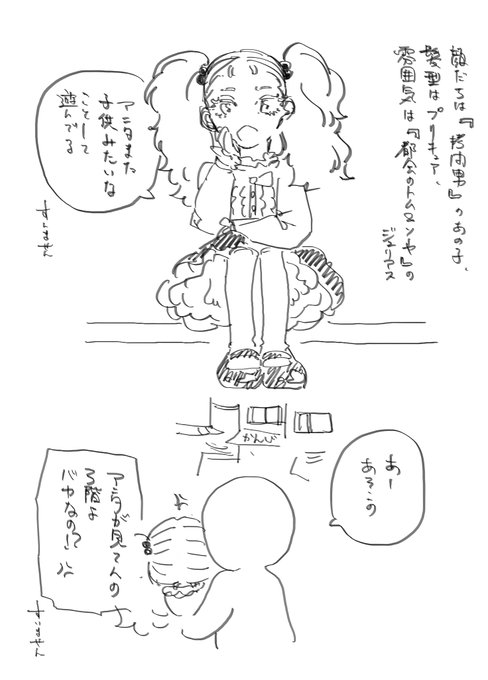 顔だちは『拷問男』のあの子、
髪型はプリキュア、
雰囲気は『都会のトム&ソーヤ』の
ジュリアス
アンタまた
子供みたいな
ことして
遊んでる
すんません
かんび
あー
あそこの
アンタが見てんの
3階よ
バカなの!?